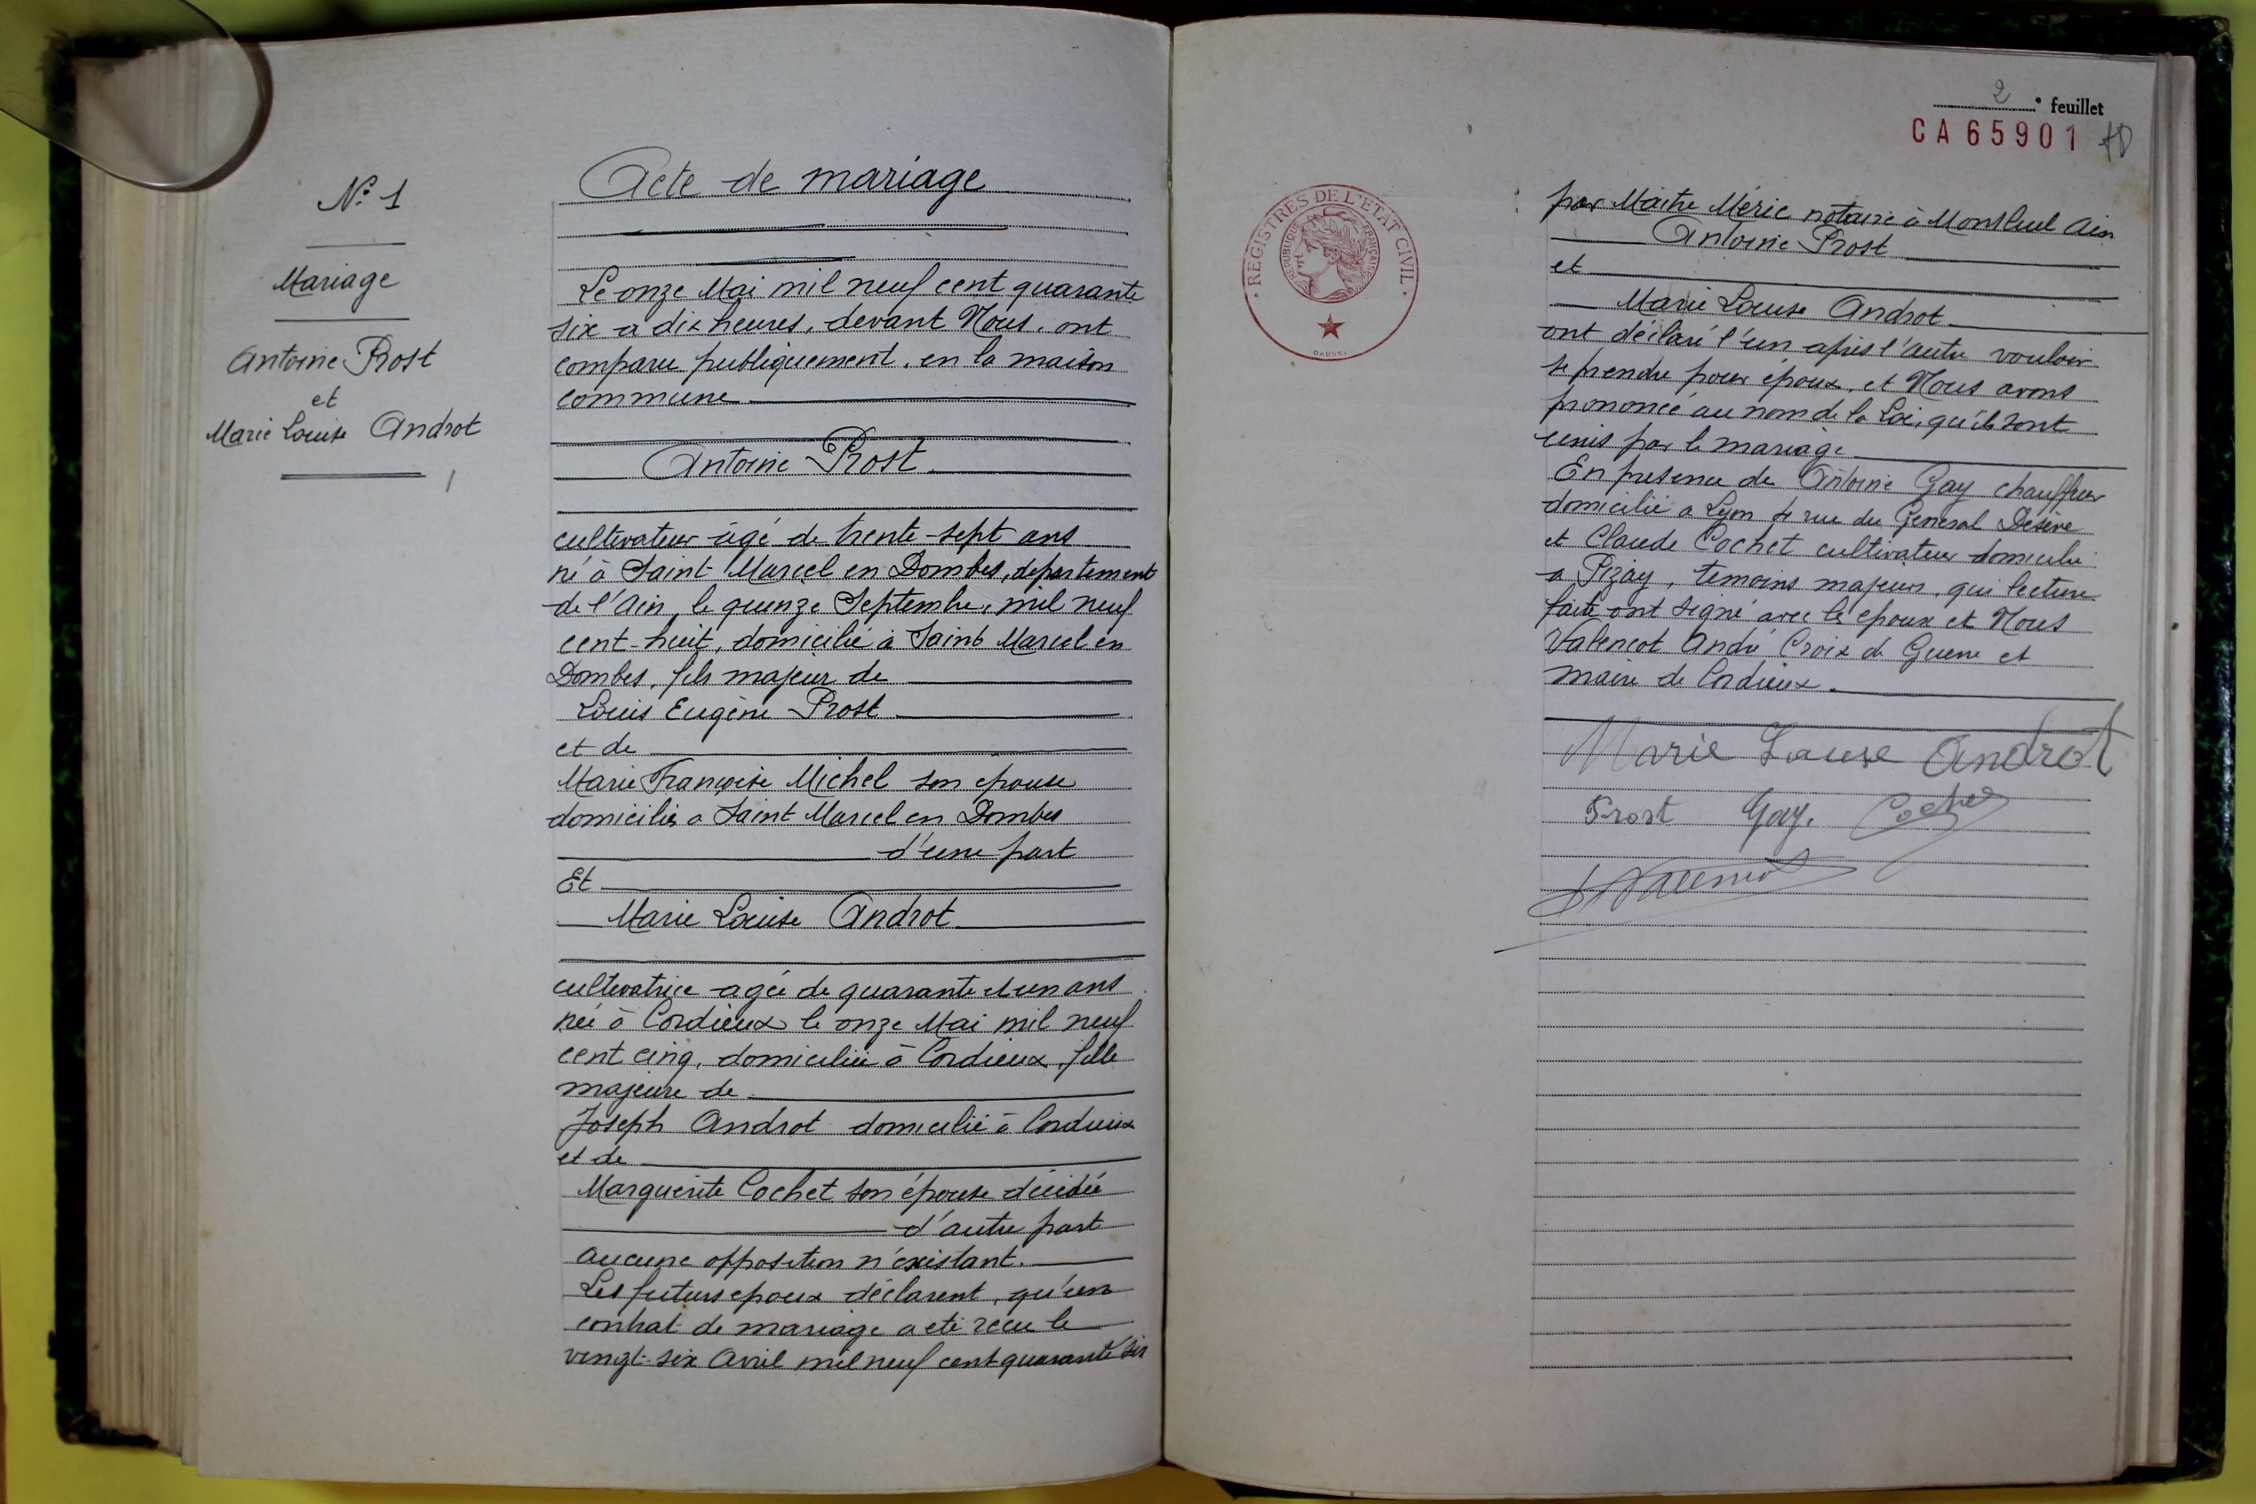 N° 1
Mariage
Antoine Prost
et
Marie Louise Androt
Acte de mariage
Le onze Mai mil neuf cent quarante
six a dix heures, devant Nous, ont
comparu publiquement, en la maison
commune
Antoine Prost
cultivateur âgé de trente-sept ans
né à Saint Marcel en Dombes, departement
de l'Ain, le quinze Septembre, mil neuf
cent-huit, domicilié à Saint Marcel en
Dombes, fils majeur de
Louis Eugène Prost
et de
Marie Françoise Michel son epouse
domiciliés a Saint Marcel en Dombes
d'une part
Et
Marie Louise Androt
cultivatrice agée de quarante et un ans
née à Cordieux le onze Mai mil neuf
cent cinq, domiciliée à Cordieux, fille
majeure de
Joseph Androt domicilié à Cordieux
et de
Marguerite Cochet son épouse décédée
d'autre part
aucune opposition n'existant.
Les futurs epoux déclarent, qu'un
contrat de mariage a été recu le
vingt-six Avril mil neuf cent quarante six
2e feuillet
CA 65901
REGISTRES DE L'ETAT CIVIL
REPUBLIQUE FRANÇAISE
par Maitre Méric notaire à Montluel Ain
Antoine Prost
et
Marie Louise Androt
ont déclaré l'un après l'autre vouloir
se prendre pour époux, et Nous avons
prononcé au nom de la Loi, qu'ils sont
unis par le mariage
En presence de Antoine Gay chauffeur
domicilié a Lyon 4 rue du General
et Claude Cochet cultivateur domicilié
a Pizay, temoins majeurs, qui lecture
faite ont signé avec les epoux et Nous
Valencot André Croix de Guerre et
maire de Cordieux.
Marie Louise Androt
Prost Gay. Cochet